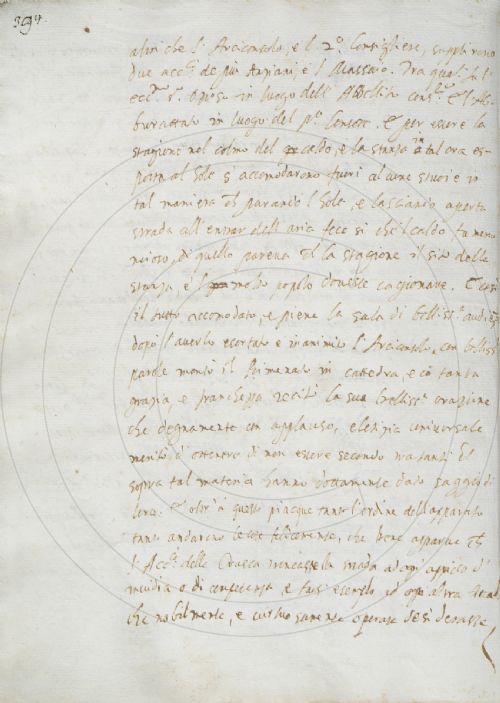 394.
altri che l'Arciconsolo, e l 2.° Consigliere, supplirono
due acc.ci de più Anziani, e l Massaro. Tra quali fu l
ecc.mo s.r in luogo dell' cons.re e l'
burattato in luogo del p.o Censore. E per essere la
stagione nel colmo del caldo, e la stanza in tal ora es-
posta al Sole s accomodarono fuori alcune stuoie in
tal maniera ch parando l Sole, e lasciando aperta
strada all' entrar dell aria fece sì che l caldo fu meno
noioso, di quello pareva ch la stagione il sito della
stanza, e l molto popolo dovesse cagionare. E così
il tutto accomodato, e piena la sala di bellis.a
dopo l'averlo esortato e inanimito l'Arciconsolo, con belliss.e
parole montò il in cattedra, e cō tanta
grazia, e franchezza recitò la sua belliss.a orazione
che degnamente con applauso, e letizia universale
meritò d ottenere di non essere secondo a quanti
sopra tal materia hanno dottamente dato saggio di
loro. E oltr' a questo piacque tanto l'ordine dell apparato
tanto andarono le cose felicemente, che bene apparve ch
l'Acc.a della Crusca la strada ad ogni di
invidia o di e fusse esempio ad ogni altra
che nobilmente, e virtuosamente operare desiderasse